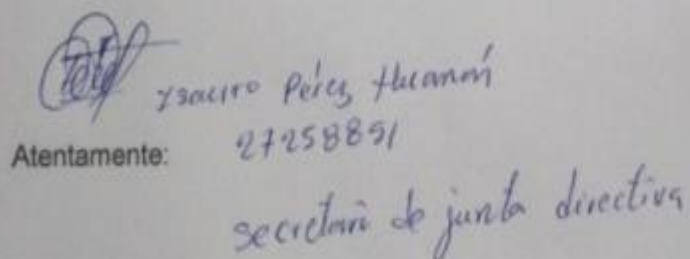 Ysauro Pérez Huamán
Atentamente: 27258851
secretari de junta directiva